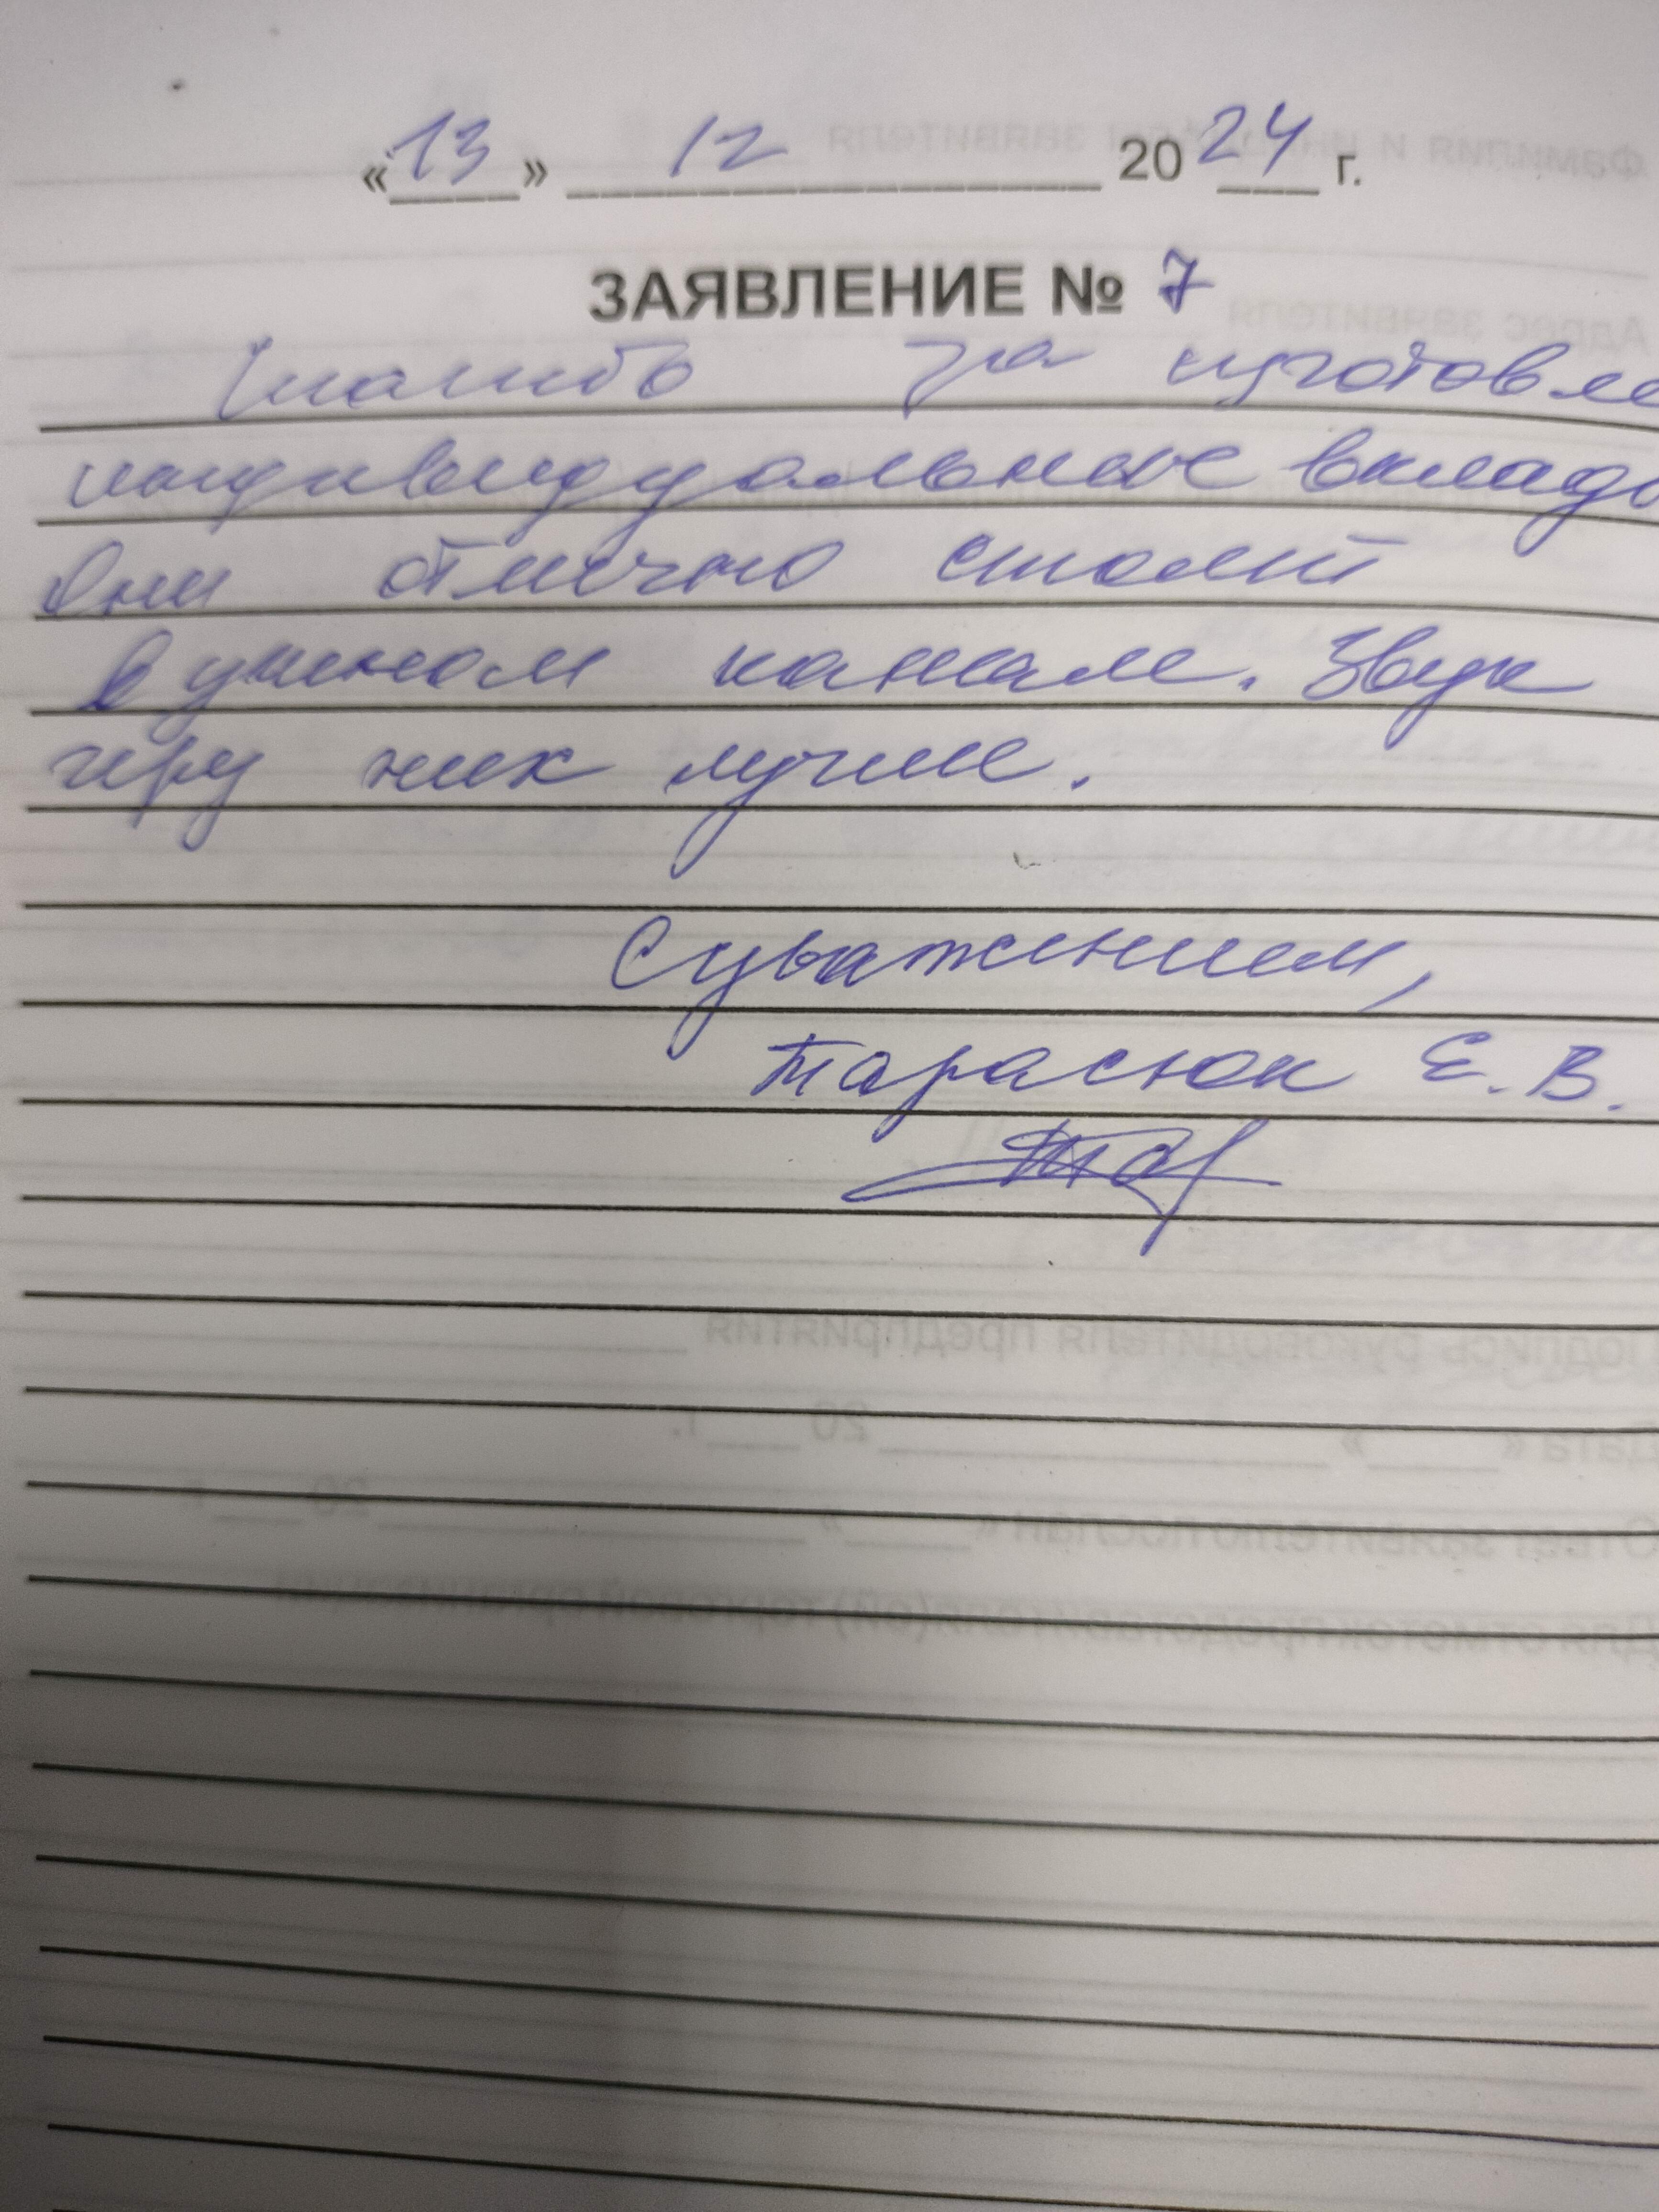 «13» 12 2024 г.
ЗАЯВЛЕНИЕ № 7
Спасибо за изготовле
индивидуальные вклады
Они отлично стоят
в ушном канале. Звук
через них лучше.
С уважением,
Тарасюк Е. В.